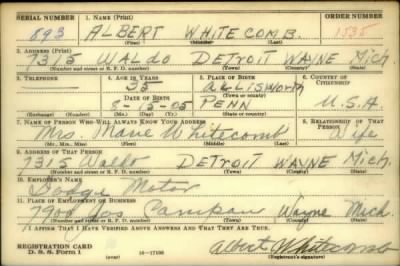 SERIAL NUMBER 1. NAME (Print) ORDER NUMBER
893 ALBERT WHITECOMB. 1535
(First) (Middle) (Last)
2. ADDRESS (Print)
7315 WALDO DETROIT WAYNE Mich
(Number and street or R. F. D. number) (Town) (County) (State)
3. TELEPHONE 4. AGE IN YEARS 5. PLACE OF BIRTH 6. COUNTRY OF CITIZENSHIP
35
DATE OF BIRTH (Town or county)
8-15-05 PENN U.S.A.
(Exchange) (Number) (Mo.) (Day) (Yr.) (State or country)
7. NAME OF PERSON WHO WILL ALWAYS KNOW YOUR ADDRESS 8. RELATIONSHIP OF THAT PERSON
Mrs. Marie Whitecomb Wife
(Mr., Mrs., Miss) (First) (Middle) (Last)
9. ADDRESS OF THAT PERSON
7315 Waldo DETROIT WAYNE Mich.
(Number and street or R. F. D. number) (Town) (County) (State)
10. EMPLOYER'S NAME
Dodge Motor
11. PLACE OF EMPLOYMENT OR BUSINESS
7900 Jos Campau Wayne Mich.
(Number and street or R. F. D. number) (Town) (County) (State)
I AFFIRM THAT I HAVE VERIFIED ABOVE ANSWERS AND THAT THEY ARE TRUE.
REGISTRATION CARD Albert Whitecomb
D. S. S. Form 1 (over) 16—17105 (Registrant's signature)